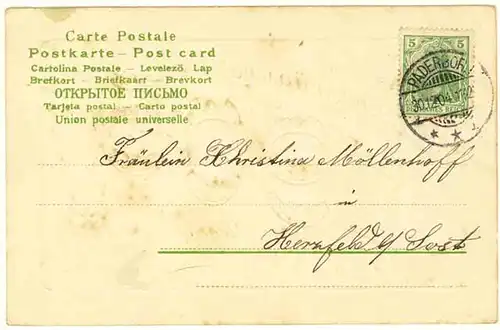 Carte Postale
Postkarte – Post card
Cartolina Postale – Levelező Lap
Brefkort – Briefkaart – Brevkort
ОТКРЫТОЕ ПИСЬМО
Tarjeta postal – Carto postal
Union postale universelle
5 5
PADERBORN
Fräulein Christina Möllenhoff
in
Herzfeld b/ Soest